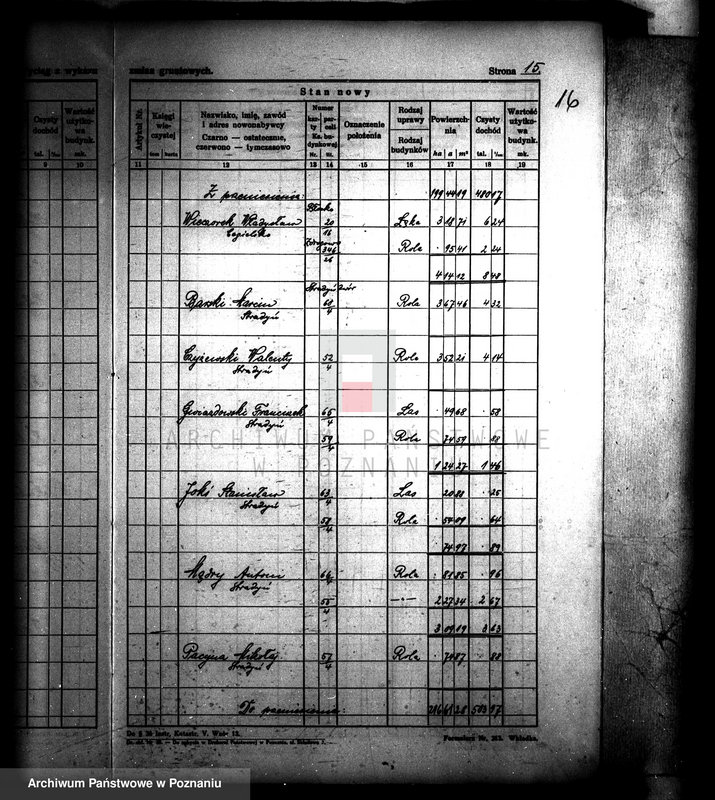 zmian gruntowych.
Strona 15.
16
Stan nowy
Czysty dochód
Wartość użytko- wa budynk.
Artykuł Nr.
Księgi wie- czystej
Nazwisko, imię, zawód i adres nowonabywcy
Czarno — ostatecznie, czerwono — tymczasowo
Numer
kar- ty
par- celi
Oznaczenie położenia
Rodzaj uprawy
Rodzaj budynków
Powierzch- nia
Czysty dochód
Wartość użytko- wa budynk.
tal.
mk.
tom karta
Nr. Nr.
ha a m²
tal.
mk.
9 10 11 12 13 14 15 16 17 18 19
Z przeniesienia: 199 44 89 480 17
Wieczorek Władysław 20 Łąka 3 18 71 6 24
16
346 Rola . 95 41 2 24
4 14 12 8 48
Barski Marcin 68 Rola 3 67 46 4 32
Stradyń 4
Czyżewski Walenty 52 Rola 3 52 21 4 14
Stradyń 4
Gwiazdowski Franciszek 65 Las . 49 68 . 58
Stradyń 4
59 Rola . 74 59 . 88
4
1 24 27 1 46
Stanisław 63 Las . 20 88 . 25
Stradyń 4
58 Rola . 54 09 . 64
4
. 74 97 . 89
Mądry Antoni 64 Rola . 81 85 . 96
Stradyń 4
55 —„— 2 27 34 2 67
4
3 09 19 3 63
Pacyna Mikołaj 57 Rola . 74 87 . 88
Stradyń 4
Do przeniesienia: 216 61 28 503 97
Do § 36 Instr. Katastr. V. Wzór 12.
Formularz Nr. 213. Wkładka.
ARCHIWUM PAŃSTWOWE
W POZNANIU
Archiwum Państwowe w Poznaniu